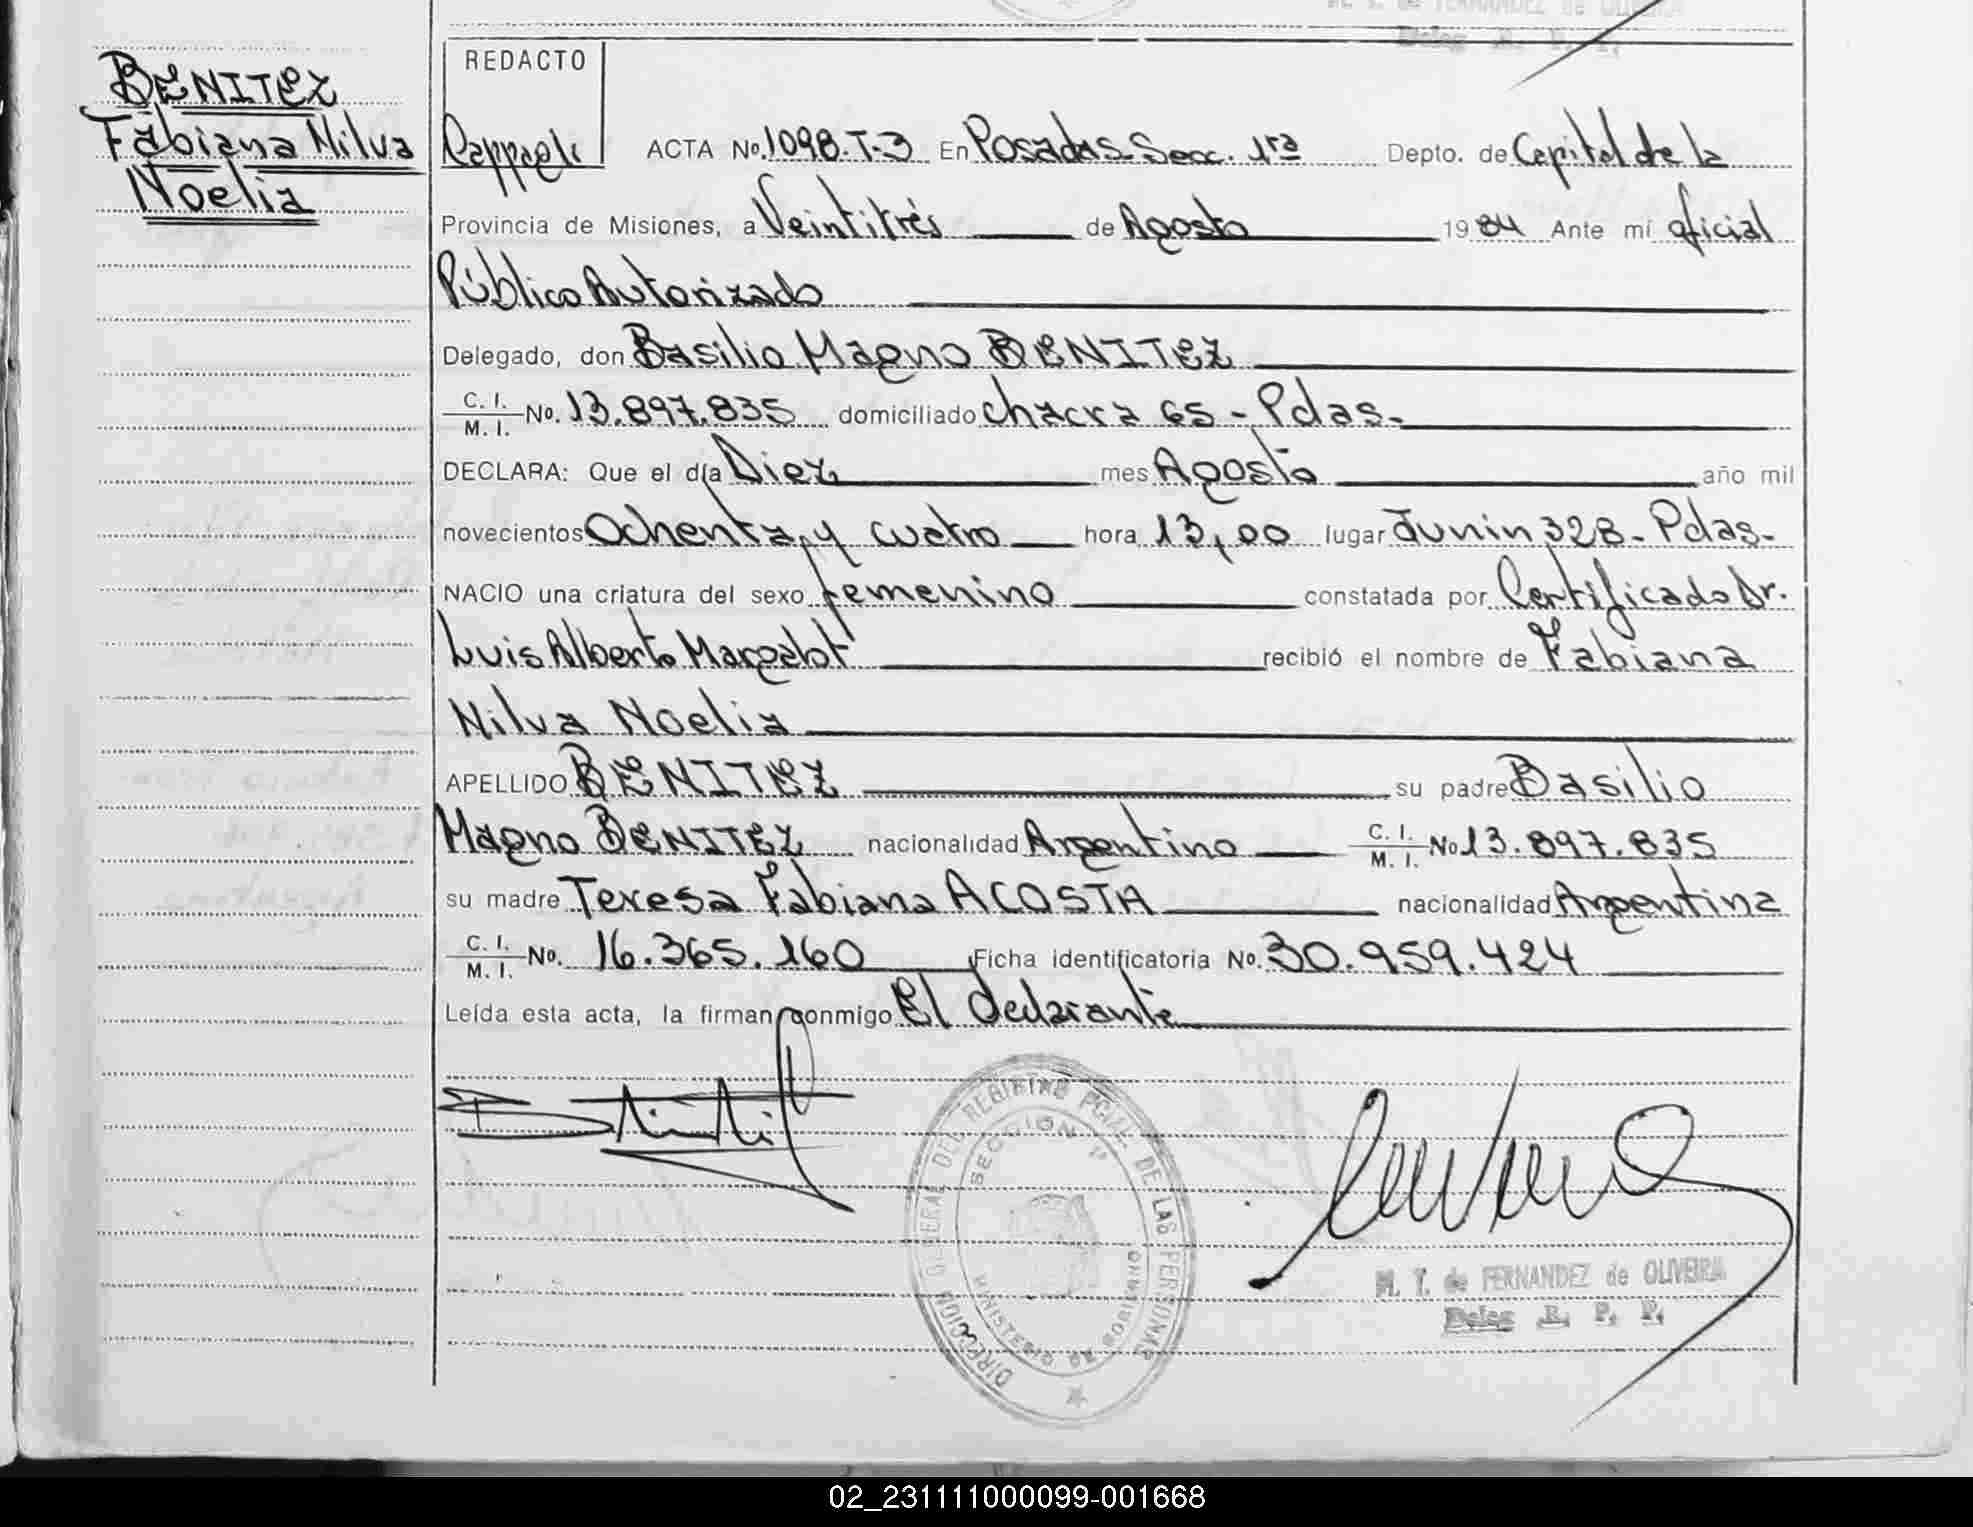 M. T. de FERNANDEZ de OLIVEIRA
Deleg R. P. P.
BENITEZ
Fabiana Nilva
Noelia
REDACTO
ACTA No. 1098-T-3 En Posadas-Secc. 1ra Depto. de Capital de la
Provincia de Misiones, a Veintitrés de Agosto 1984 Ante mí oficial
Público Autorizado
Delegado, don Basilio Magno BENITEZ
C. I. M. I. No. 13.897.835 domiciliado chacra 65 - Pdas-
DECLARA: Que el día Diez mes Agosto año mil
novecientos Ochenta y cuatro hora 13,00 lugar Junin 328- Pdas-
NACIO una criatura del sexo femenino constatada por Certificado Dr.
Luis Alberto Margalot recibió el nombre de Fabiana
Nilva Noelia
APELLIDO BENITEZ su padre Basilio
Magno BENITEZ nacionalidad Argentino C. I. M. I. No 13.897.835
su madre Teresa Fabiana ACOSTA nacionalidad Argentina
C. I. M. I. No. 16.365.160 Ficha identificatoria No. 30.959.424
Leída esta acta, la firman conmigo El declarante
DIRECCION GENERAL DEL REGISTRO PCIAL DE LAS PERSONAS
SECCION 1ª
MINISTERIO DE GOBIERNO
M. T. de FERNANDEZ de OLIVEIRA
Deleg R. P. P.
02_231111000099-001668